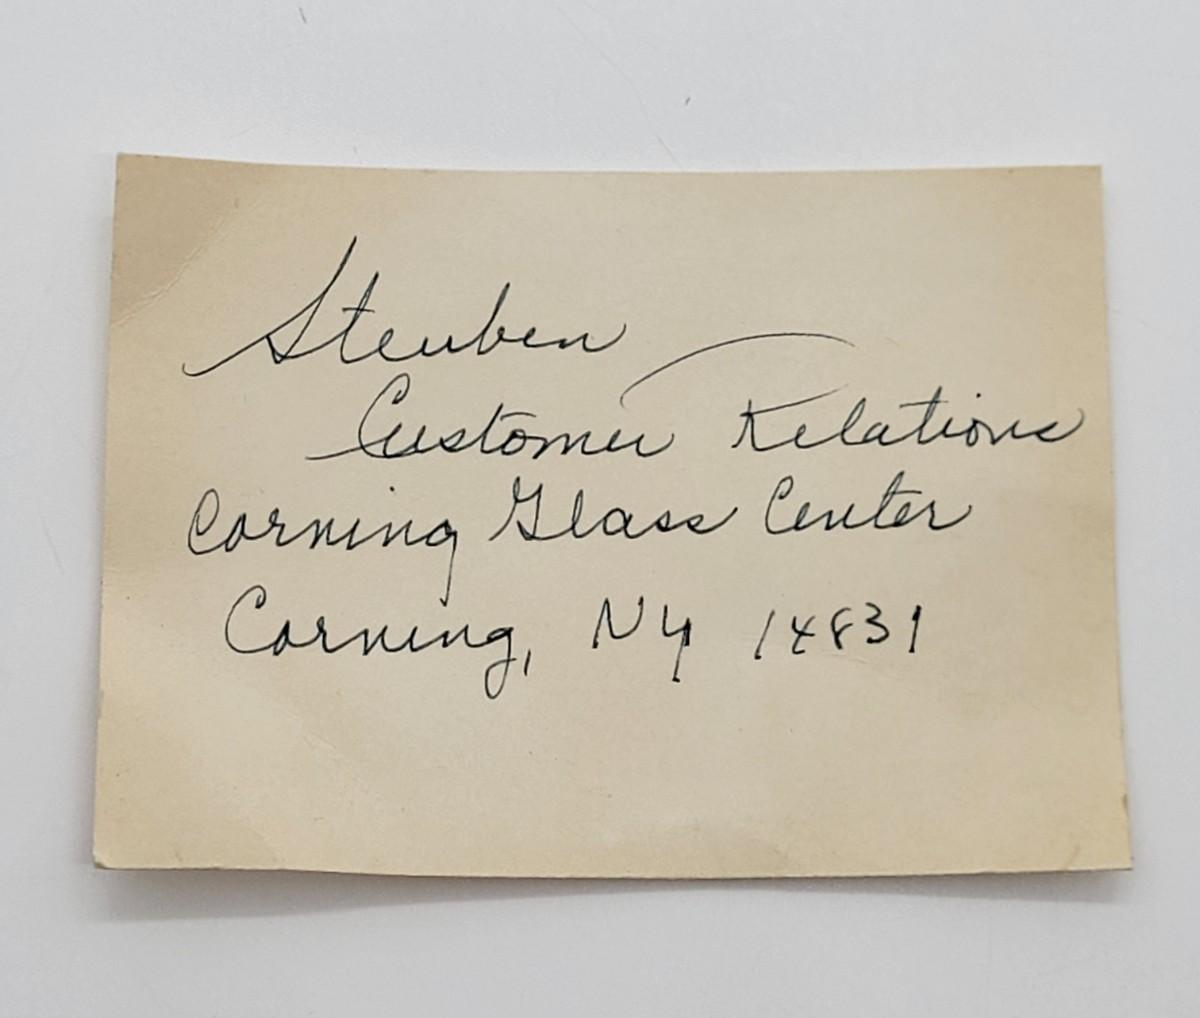 Steuben
Customer Relations
Corning Glass Center
Corning, NY 14831